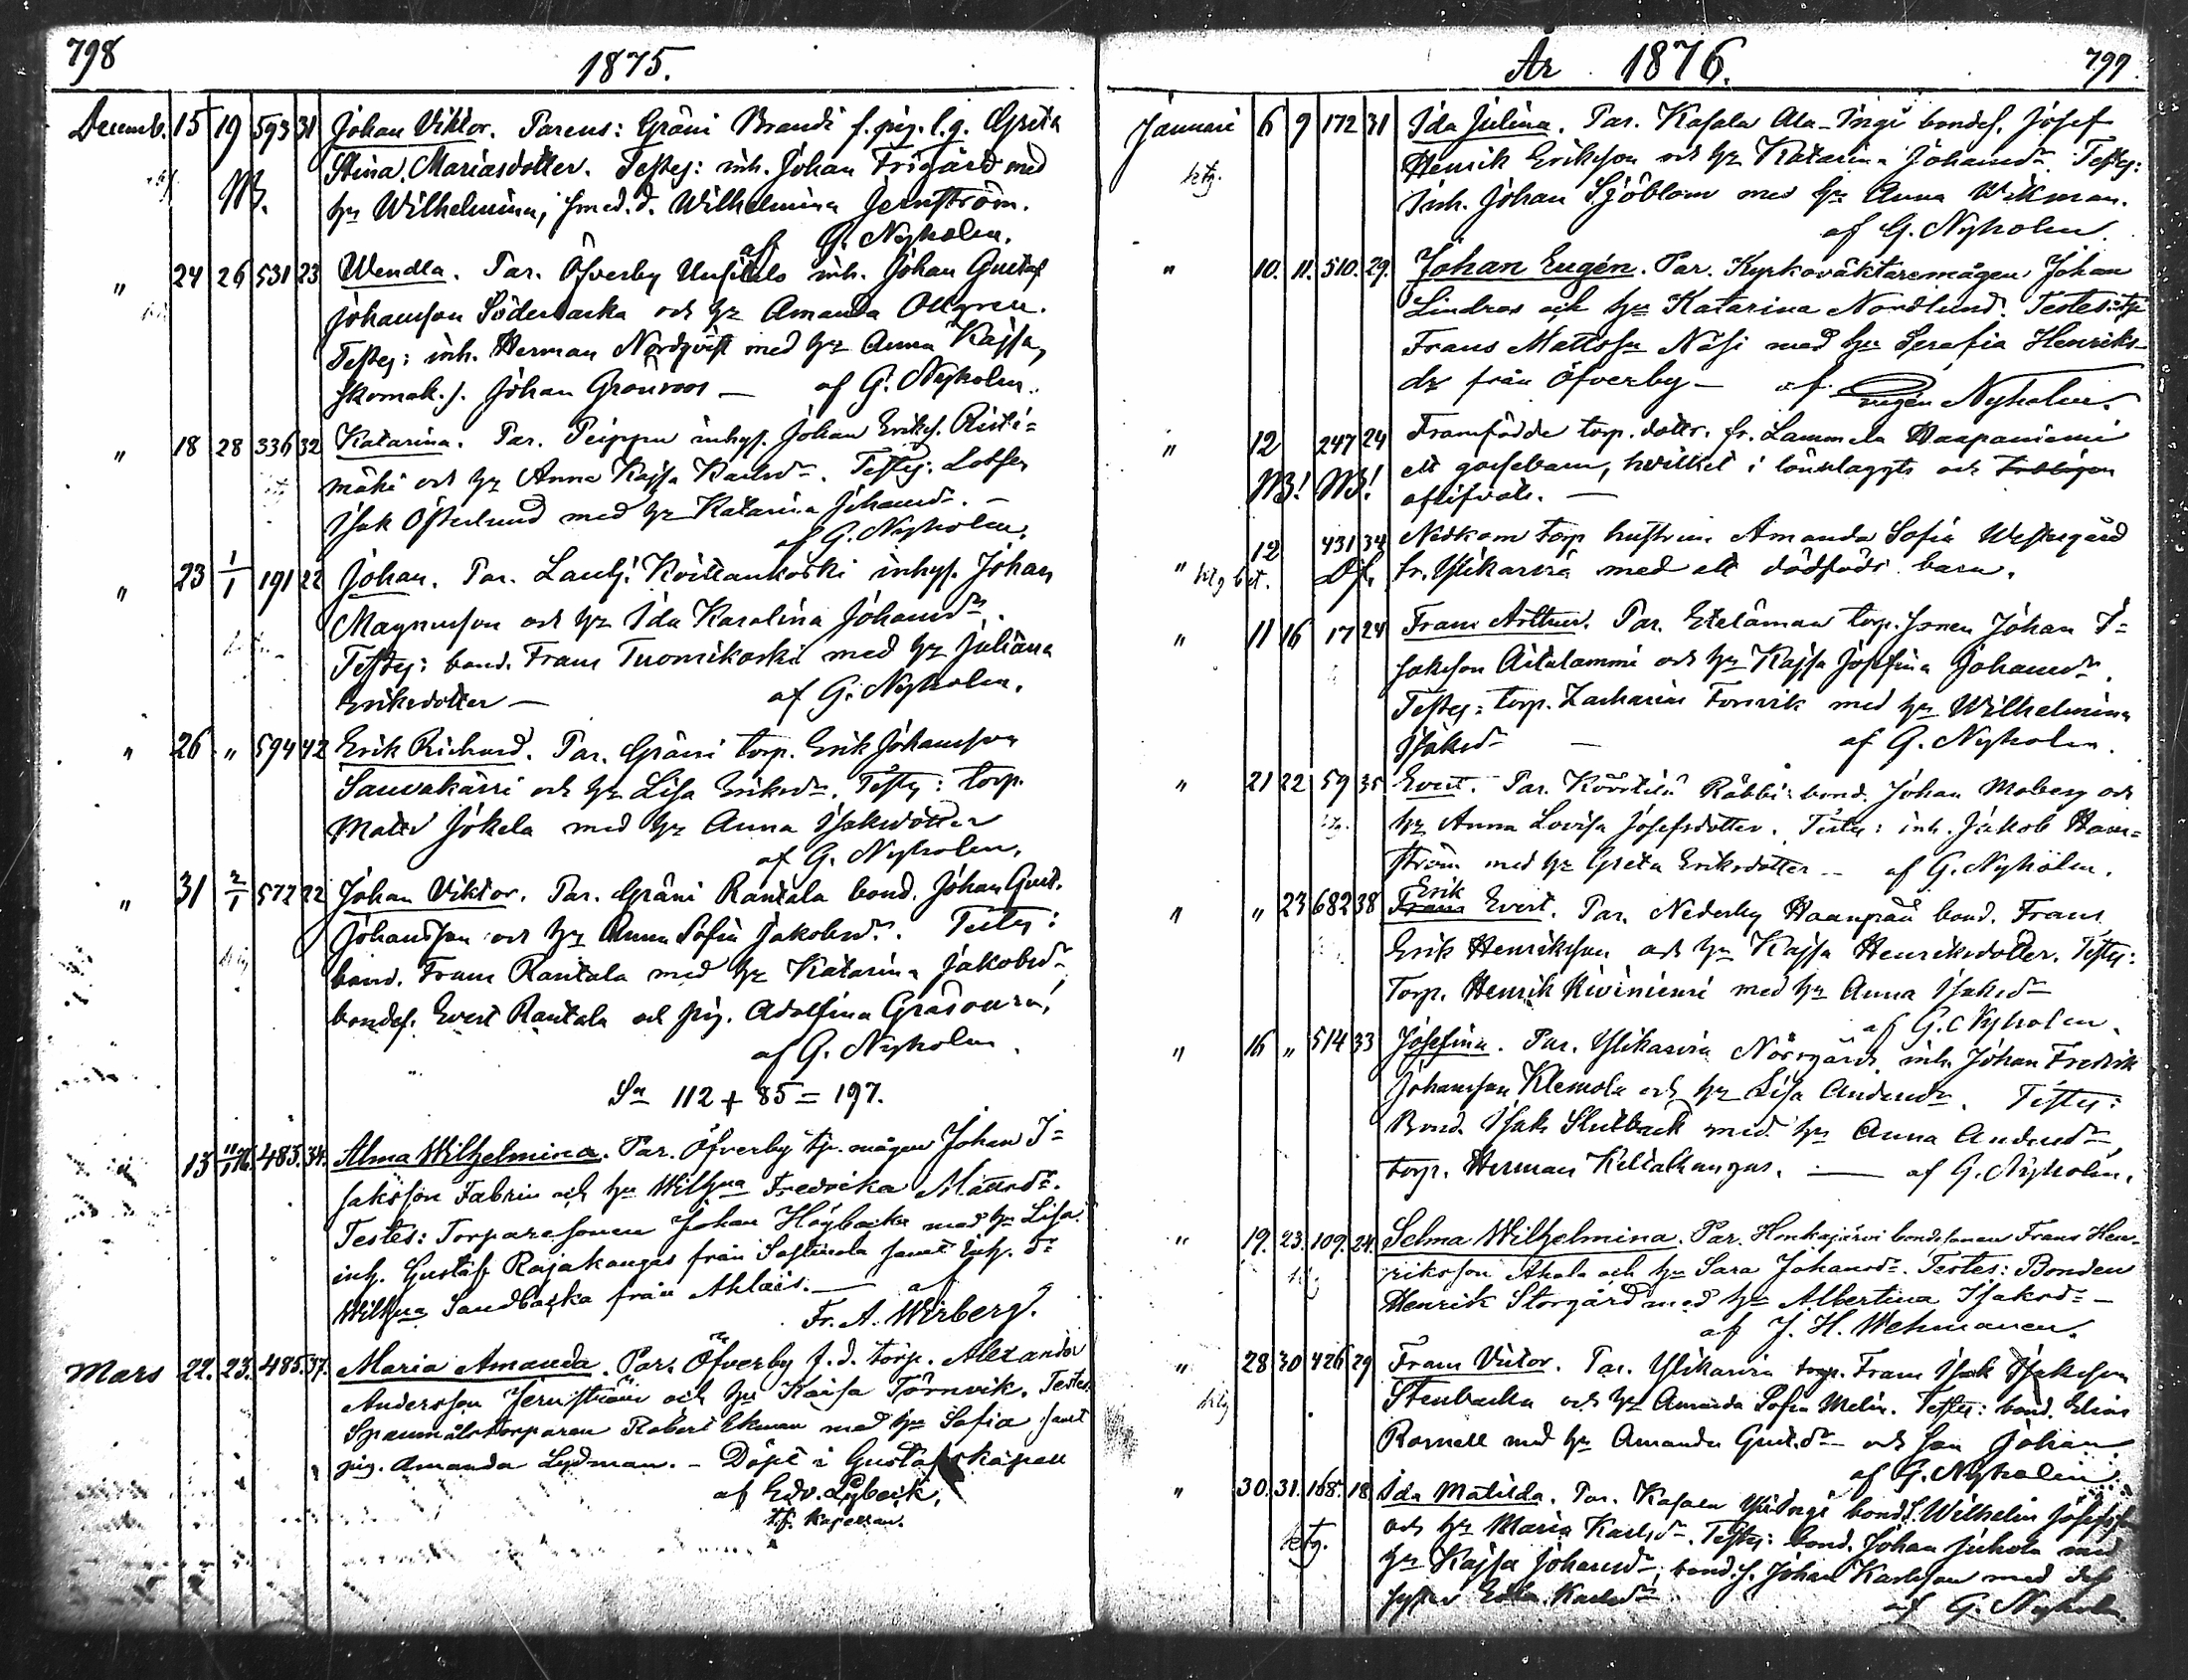 798
1875.
Decemb. 15 19 593 31 Johan Viktor. Parens: Gräni Brandi f. pig. l. q. Greta
NB. Stina Mariasdotter. Testes: inh. Johan Frigård med
hr Wilhelmina, smed. d. Wilhelmina Jernström.
af G. Nyholm.
" 24 26 531 23 Wendla. Par. Öfverby inh. Johan Gustaf
Johansson Söderbacka och hr Amanda
Testes: inh. Herman Nordqvist med hr Anna Kajsa,
skomak. s. Johan Grönroos — af G. Nyholm.
" 18 28 336 32 Katarina. Par. Peippu inhys. Johan Eriks. Risti=
mäki och hr Anna Kajsa Karlsdr. Testes: Lotsen
Isak Österlund med hr Katarina Johansdr. —
af G. Nyholm.
" 23 1/1 191 22 Johan. Par. Koittankoski inhys. Johan
Magnusson och hr Ida Karolina Johansdr.
Testes: bond. Frans Tuomikoski med hr Juliana
Eriksdotter — af G. Nyholm.
" 26 " 594 42 Erik Richard. Par. Gräni torp. Erik Johansson
Sauvakärri och hr Lisa Eriksdr. Testes: torp.
Matts Jokela med hr Anna Isaksdotter
af G. Nyholm.
" 31 2/1 572 22 Johan Viktor. Par. Gräni Rantala bond. Johan Gust.
Johansson och hr Anna Sofia Jakobsdr. Testes:
bond. Frans Rantala med hr Katarina Jakobsdr,
bondes. Evert Rantala och pig. Adolfina Gråsoura,
af G. Nyholm.
Sa 112 + 85 = 197.
13 11/1 76. 483. 34. Alma Wilhelmina. Par. Öfverby tjr. mågen Johan I=
saksson Fabrin och hr Wilhna Fredrika Mattsdr.
Testes: Torparesonen Johan Högbacka med hr Lisa
inh. Gustaf Rajakangas från Sastmola samt inh. dr
Wilhna Sandbacka från Ahlais. — af
Fr. A. Wirberg.
Mars 22. 23. 485. 37. Maria Amanda. Par. Öfverby f. d. torp. Alexander
Andersson Jernström och hr Kaisa Törnvik. Testes:
Spannmålstorparen Robert Ekman med hr Sofia samt
pig. Amanda Lydman. — Döpt i Gustafs kapell
af Edv. Lybeck,
t.f. Kapellan.
År 1876.
799
Januari 6 9 172 31 Ida Julina. Par. Kasala Ala-Ingi bondes. Josef
Henrik Eriksson och hr Katarina Johansdr. Testes:
btg. Inh. Johan Sjöblom med hr Anna Wikman.
af G. Nyholm.
" 10. 11. 510. 29. Johan Eugén. Par. Kyrkoväktaremågen Johan
Lindros och hr Katarina Nordlund. Testes:
Frans Mattsson Näsi med hr Serafia Henriks-
dr från Öfverby — af Eugén Nyholm.
" 12 247 24 Framfödde torp. dottr. fr. Lammela Haapaniemi
NB! NB! ett gossebarn, hvilket i lönnlaggts och
aflifvats. —
" 12 431 34 Nedkom torp. hustrun Amanda Sofia Westergård
Df. fr. Ylikarvia med ett dödfödt barn.
" 11 16 17 24 Frans Arthur. Par. Etelämaa torp. sonen Johan I=
saksson Aitalammi och hr Kajsa Josefina Johansdr.
Testes: torp. Zacharias Forsvik med hr Wilhelmina
Isaksdr — af G. Nyholm.
" 21 22 59 35 Evert. Par. Kööttilä Räbbi bond. Johan Moberg och
btg. hr Anna Lovisa Josefsdotter. Testes: inh. Jakob Ham=
ström med hr Greta Eriksdotter — af G. Nyholm.
" " 23 682 38 Erik
Frans Evert. Par. Nederby Haanpää bond. Frans
Erik Henriksson och hr Kajsa Henriksdotter. Testes:
Torp. Henrik Kiviniemi med hr Anna Isaksdr
af G. Nyholm.
" 16 " 514 33 Josefina. Par. Ylikarvia Norrgård inh. Johan Fredrik
Johansson Klemola och hr Lisa Andersdr. Testes:
Bond. Isak Slutback med hr Anna Andersdr,
torp. Herman Kiltakangas. — af G. Nyholm.
" 19. 23. 109. 24. Selma Wilhelmina. Par. Honkajärvi bondesonen Frans Hen-
riksson Ahola och hr Sara Johansdr. Testes: Bonden
Henrik Storgård med hr Albertina Isaksdr —
af J. H. Wehmanen.
" 28 30 426 29 Frans Victor. Par. Ylikarvia torp. Frans Isak Isaksson
btg Stenbacka och hr Amanda Sofia Melin. Testes: bond. Elias
Rosnell med hr Amanda Gust.dr och son Johan
af G. Nyholm.
" 30. 31. 168. 18. Ida Matilda. Par. Kasala Yli-Ingi bonds. Wilhelm Josefss.
btg. och hr Maria Karlsdr. Testes: bond. Johan Juhola med
hr Kajsa Johansdr, bond. s. Johan Karlsson med des
syster Edla Karlsdr af G. Nyholm.